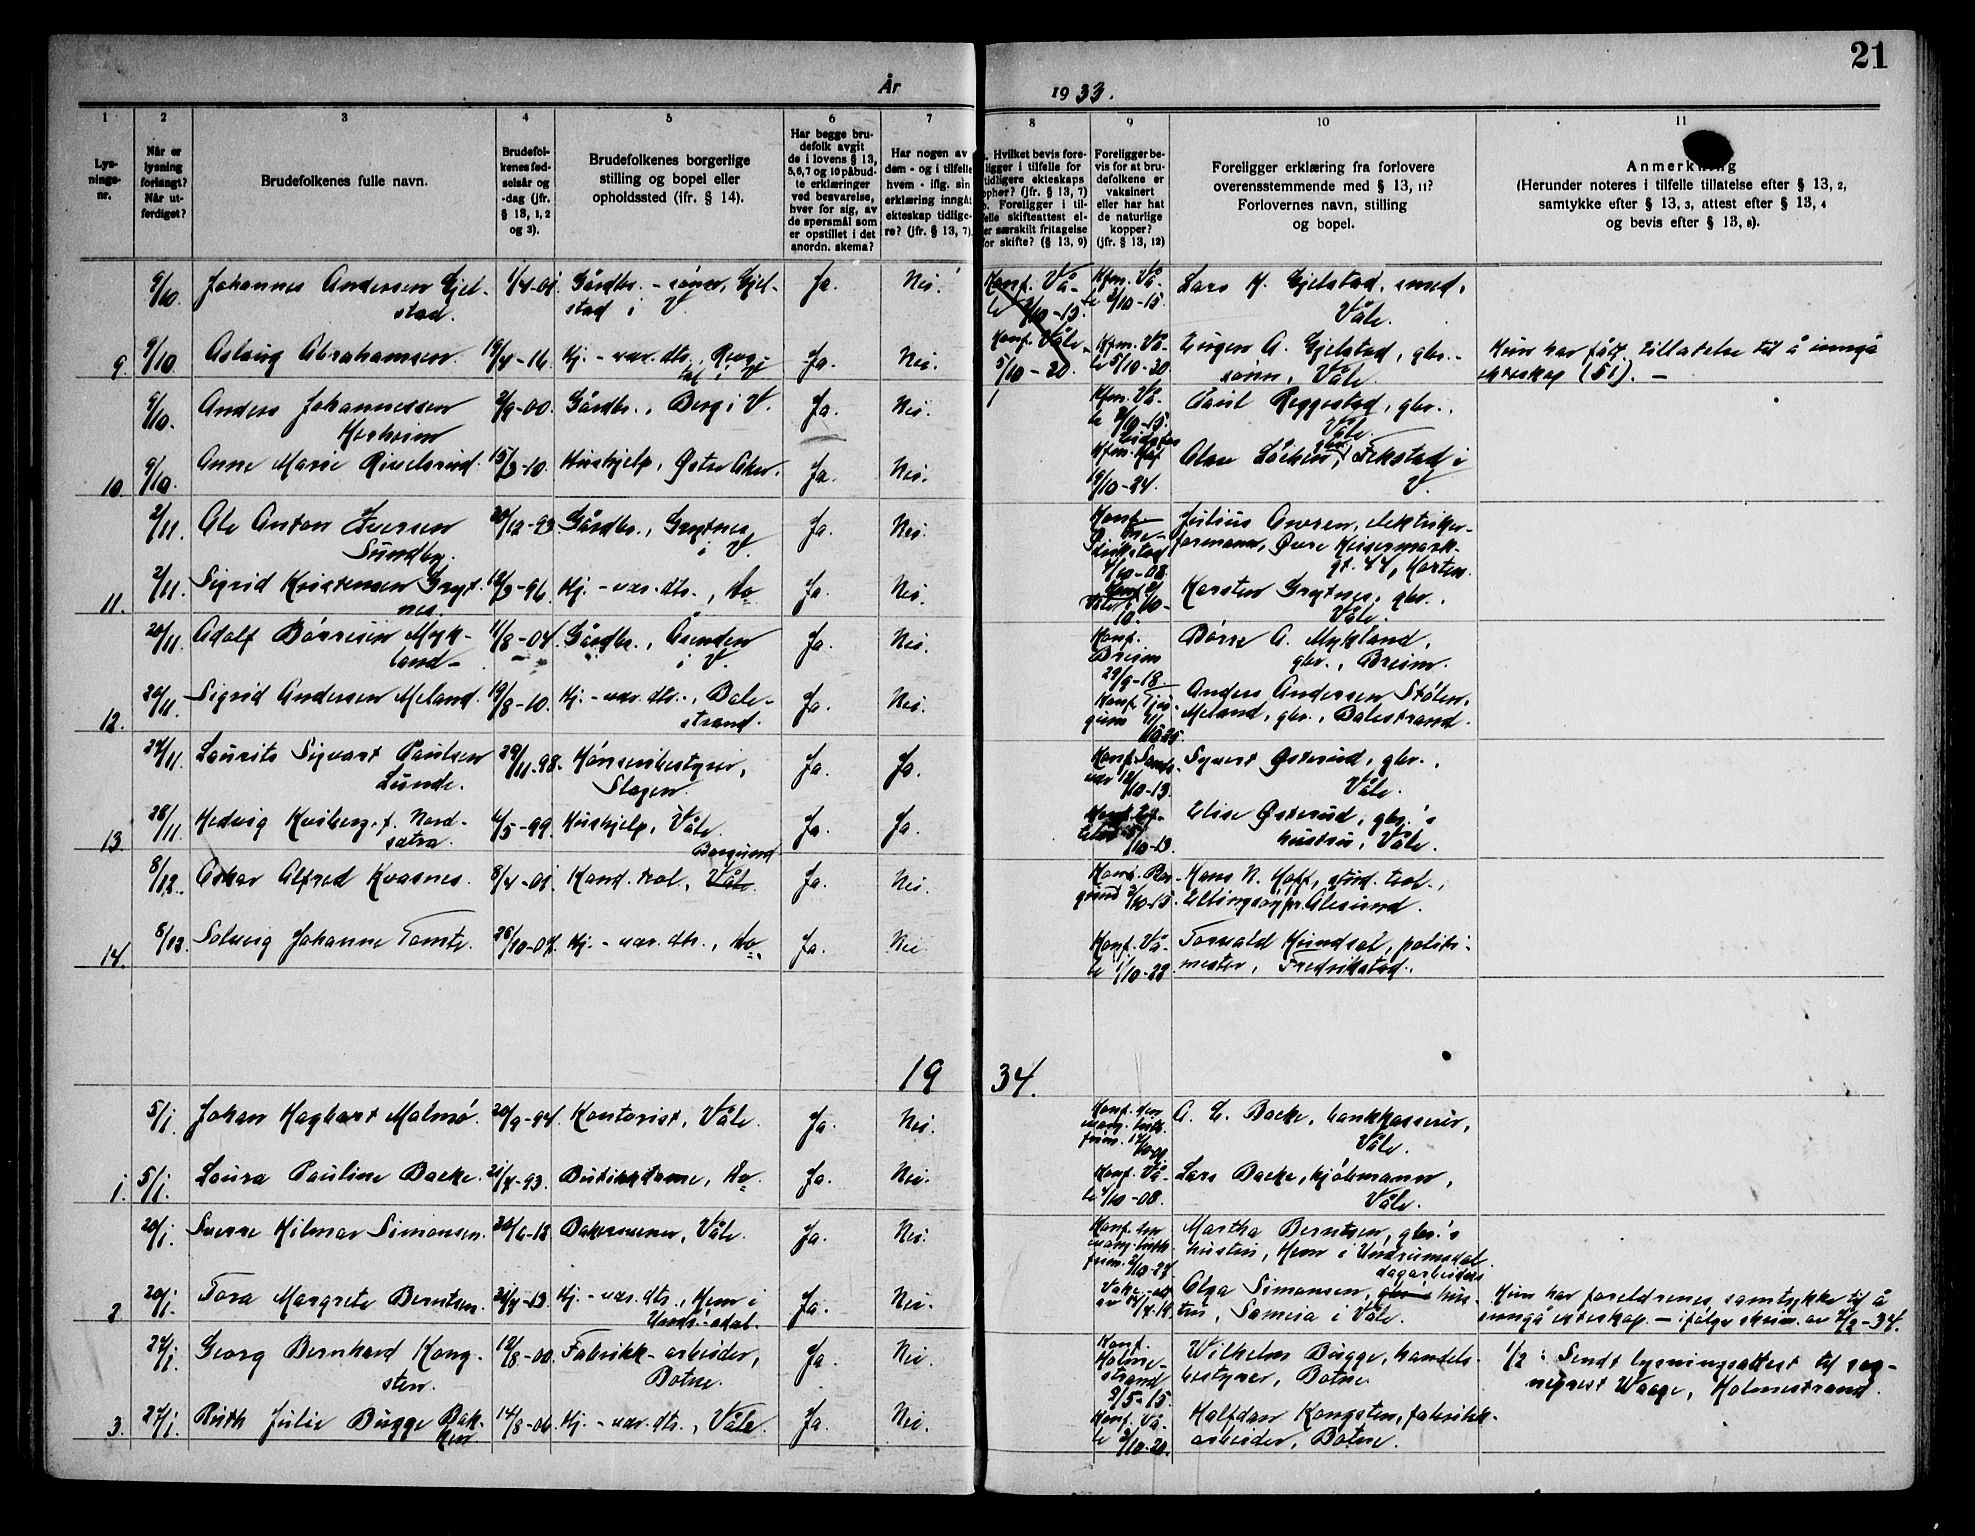 21
År
1933.
1
2
3
4
5
6
7
8
9
10
11
Lys-
nings-
nr.
Når er
lysning
forlangt?
Når ut-
ferdiget?
Brudefolkenes fulle navn.
Brudefol-
kenes fød-
selsår og
-dag (jfr.
§ 13, 1, 2
og 3).
Brudefolkenes borgerlige
stilling og bopel eller
opholdssted (ifr. § 14).
Har begge bru-
defolk avgit
de i lovens § 13,
5,6,7 og 10 påbud-
te erklæringer
ved besvarelse,
hver for sig, av
de spørsmål som
er opstillet i det
anordn. skema?
Har nogen av
dem - og i tilfelle
hvem - iflg. sin
erklæring inngåt
ekteskap tidlige-
re? (jfr. § 13, 7).
Hvilket bevis fore-
ligger i tilfelle for
tidligere ekteskaps
ophør? (jfr. § 13, 7)
Foreligger i til-
felle skifteattest el-
er særskilt fritagelse
for skifte? (§ 13, 9)
Foreligger be-
vis for at bru-
defolkene er
vaksinert
eller har hat
de naturlige
kopper?
(jfr. § 13, 12)
Foreligger erklæring fra forlovere
overensstemmende med § 13, 11?
Forlovernes navn, stilling
og bopel.
Anmerkning
(Herunder noteres i tilfelle tillatelse efter § 13, 2,
samtykke efter § 13, 3, attest efter § 13, 4
og bevis efter § 13, 8).
9/10. Johannes Andersen Gjel-
stad. 1/4-01. Gårdbr. - sønn, Gjel-
stad i V. Ja. Nei. Konf. Vå-
le 3/10-15. Kfm. Vå-
le 3/10-15. Lars H. Gjelstad, smed,
Våle.
9. 9/10. Aslaug Abrahamsen. 19/4-16. Hj. - vær. dtr., Revo-
tal i V. Ja. Nei. Konf. Våle
5/10-20. Kfm. Vå-
le 5/10-30. Eugen A. Gjelstad, gbr.-
sønn, Våle. Hun har fått tillatelse til å inngå
ekteskap (51). —
9/10. Anders Johannessen
Herheim 2/9-00. Gårdbr., Berg i V. Ja. Nei. Kfm. Vå-
le 3/10-15. Paul Reggestad, gbr.,
Våle.
10. 9/10. Anne Marie Risselsrud. 15/3-10. Hushjelp, Østre Aker. Ja. Nei. Kfm. 10-24. Olav Løken, gbr., Fekstad i
V.
2/11. Ole Anton Iversen
Sundby. 20/12-93. Gårdbr., Grytnes
i V. Ja. Nei. Konf. Julius Iversen, elektriker-
formann, Øvre Keisermark-
gt. 44, Horten.
11. 2/11. Sigrid Kristensen Gryt-
nes. 12/3-96. Hj. - vær. dtr., do. Ja. Nei. Konf. Karsten Grytnes, gbr.,
Våle.
20/11. Adolf Børresen Myk-
land- 11/8-04. Gårdbr., Åsenden
i V. Ja. Nei. Konf.
Breim
29/9-18. Børre A. Mykland,
gbr., Breim.
12. 20/11. Sigrid Andersen Meland. 19/8-10. Hj. - vær. dtr., Bale-
strand. Ja. Nei. Konf. Anders Andersen Stølen,
Meland, gbr., Balestrand.
24/11. Laurits Sigvart Paulsen
Lunde. 29/11-98. Hønseribestyrer,
Slagen. Ja. Ja. Konf. Sande-
vær 12/10-13. Syvert Østerud, gbr.,
Våle.
13. 28/11. Hedvig Kviberg, f. Nord-
sætra. 6/5-99. Hushjelp, Våle. Ja. Ja. Elise Østerud, gbr.'s
hustru, Våle.
8/12. Oskar Alfred Kvasnes. 8/4-01. Kand. teol., Våle.
Borgund Ja. Nei. Konf. Bor-
gund 3/10-15. Hans N. Hoff, stud. teol.,
Ellingsøy pr. Ålesund.
14. 8/12. Solveig Johanne Tomte. 26/10-07. Hj. - vær. dtr., do. Ja. Nei. Konf. Vå-
le 1/10-22. Torvald Hundsal, politi-
mester, Fredrikstad.
1934.
5/1. Johan Hagbart Malmø. 20/9-94. Kontorist, Våle. Ja. Nei. Konf. den
evang. luth.
frim. A. E. Backe, bankkasserer,
Våle.
1. 5/1. Laura Pauline Backe. 21/4-93. Butikkdame, do. Ja. Nei. Konf. Vå-
le 4/10-08. Lars Backe, kjøbmann,
Våle.
20/1. Sverre Hilmar Simonsen. 20/6-13. Bakersvenn, Våle. Ja. Nei. Konf. den
evang. luth.
frim. 2/10-27. Martha Berntsen, gbr.'s
hustru, Hem i Undrumsdal.
2. 20/1. Tora Margrete Berntsen. 21/4-13. Hj. - vær. dtr., Hem i
Undr.-sdal. Ja. Nei. Olga Simonsen, dagarbeiders hus-
tru, Sameia i Våle. Hun har foreldrenes samtykke til å
inngå ekteskap. — ifølge skriv. av 2/2-34.
27/1. Georg Bernhard Kong-
sten. 12/8-00. Fabrikk-arbeider,
Botne. Ja. Nei. Konf.
Holme-
strand
9/5-15. Wilhelm Bugge, handels-
bestyrer, Botne. 1/2: Sendt lysningsattest til sog-
neprest Waage, Holmestrand.
3. 27/1. Ruth Julie Bugge Bak-
ken 14/8-06. Hj. - vær. dtr., Våle. Ja. Nei. Konf. Vå-
le 3/10-20. Halfdan Kongsten, fabrikk-
arbeider, Botne.